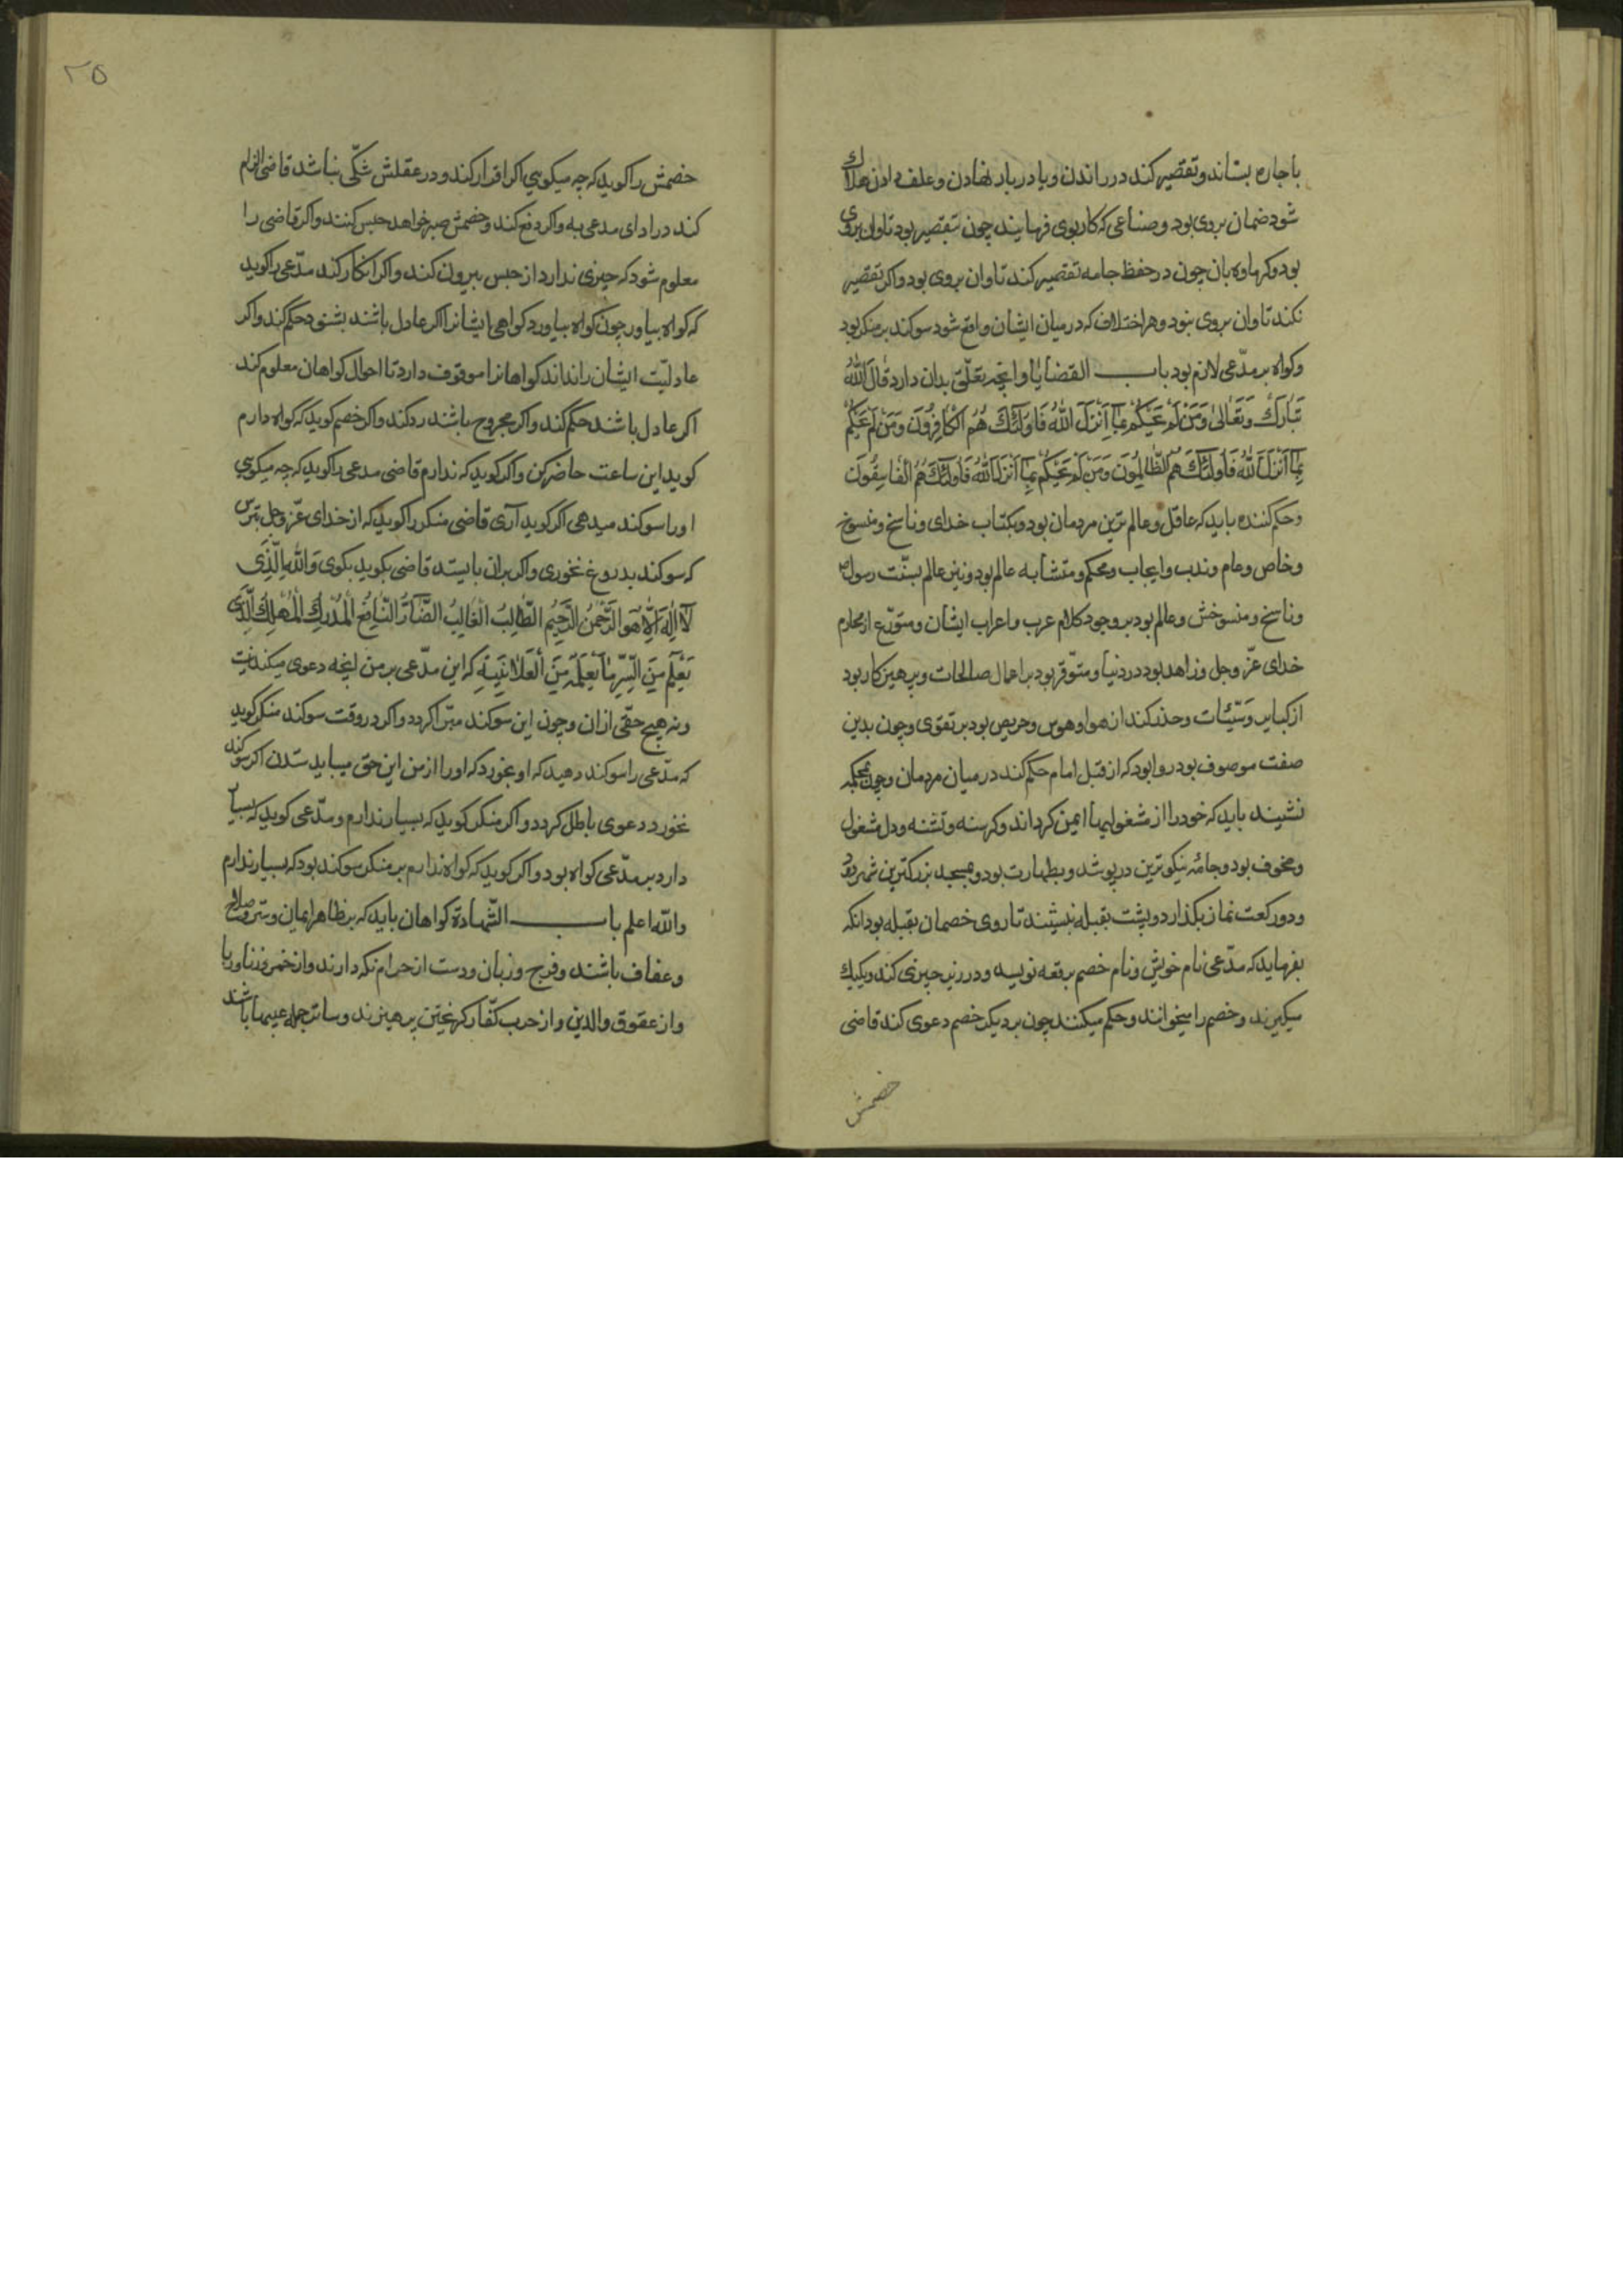 باجاره بستاند و تقصیر کند در راندن و یا در بار نهادن و علف دادن هلاک
شود ضمان بروی بود و صناعی که کار بوی فرمایند چون تقصیر بود تاوان بروی
بود و کرماوه بان چون در حفظ جامه تقصیر کند تاوان بروی بود و اکر تقصیر
نکند تاوان بروی نبود و هر اختلاف که در میان ایشان واقع شود سوکند بر منکر بود
و کواه بر مدّعی لازم بود باب القضایا و انچه تعلّق بدان دارد قال اللهُ
تَبارَكَ وَتَعالی وَمَنْ لَمْ یَحْكُمْ بِمآ اَنْزَلَ اللهُ فَاُولئِكَ هُمُ الْكافِرُونَ وَمَنْ لَمْ یَحْكُمْ
بِمآ اَنْزَلَ اللهُ فَاُولئِكَ هُمُ الظّالِمُونَ وَمَنْ لَمْ یَحْكُمْ بِمآ اَنْزَلَ اللهُ فَاُولئِكَ هُمُ الْفاسِقُونَ
و حکم کننده باید که عاقل و عالم ترین مردمان بود و بکتاب خدای و ناسخ و منسوخ
و خاص و عام و ندب و ایجاب و محکم و متشابه عالم بود و نیز عالم بسنّت رسول
و ناسخ و منسوخش و عالم بود بر وجود کلام عرب و اعراب ایشان و متورّع از محارم
خدای عزّ و جل و زاهد بود در دنیا و متوفّر بود بر اعمال صالحات و پرهیزکار بود
از کبایر و سیّئات و حذر کند از هوا و هوس و حریص بود بر تقوی و چون بدین
صفت موصوف بود روا بود که از قبل امام حکم کند در میان مردمان و چون بمحکمه
نشیند باید که خود را از مشغولیها ایمن کرداند و کرسنه و تشنه و دل مشغول
و مخوف بود و جامه نیکوترین در پوشد و بطهارت بود و بمسجد بزرکترین شهر رود
و دو رکعت نماز بکذارد و پشت بقبله نشیند تا روی خصمان بقبله بود انکه
بفرماید که مدّعی نام خویش و نام خصم برقعه نویسد و در زیر چیزی کند و یکیک
میکیرند و خصم را میخوانند و حکم میکنند چون بر دیکر خصم دعوی کند قاضی
خصمش
۲۵
خصمش را کوید که چه میکویی اکر اقرار کند و در عقلش شکّی نباشد قاضی الزام
کند در ادای مدعی به و اکر دفع کند و خصمش صبر خواهد حبس کنند و اکر قاضی را
معلوم شود که چیزی ندارد از حبس بیرون کند و اکر انکار کند مدّعی را کوید
که کواه بیاور چون کواه بیاورد کواهی ایشانرا اکر عادل باشند بشنود حکم کند و اکر
عادلیّت ایشان را نداند کواهانرا موقوف دارد تا احوال کواهان معلوم کند
اکر عادل باشند حکم کند و اکر مجروح باشند رد کند و اکر خصم کوید که کواه دارم
کوید این ساعت حاضر کن و اکر کوید که ندارم قاضی مدعی را کوید که چه میکویی
او را سوکند میدهی اکر کوید آری قاضی منکر را کوید که از خدای عزّ و جل بترس
که سوکند بدروغ نخوری و اکر بران بایستد قاضی بکوید بکوی وَاللهِ الّذی
لآ اِلهَ اِلّا هُوَ الرَّحْمنُ الرَّحیمُ الطّالِبُ الْغالِبُ الضّآرُّ النّافِعُ الْمُدْرِكُ الْمُهْلِكُ الَّذی
یَعْلَمُ مِنَ السِّرِّ ما یَعْلَمُهُ مِنَ الْعَلانِیَةِ که این مدّعی بر من انچه دعوی میکند نیست
و نه هیچ حقّی ازان و چون این سوکند مبرّا کردد و اکر در وقت سوکند منکر کوید
که مدّعی را سوکند دهید که او بخورد که او را از من این حق میباید ستدن اکر سوکند
نخورد دعوی باطل کردد و اکر منکر کوید که بسیار ندارم و مدّعی کوید که بسیار
دارد بر مدّعی کواه بود و اکر کوید که کواه ندارم بر منکر سوکند بود که بسیار ندارم
والله اعلم باب الشّهادة کواهان باید که بر ظاهر ایمان و ستر و صلاح
و عفاف باشند و فرج و زبان و دست از حرام نکه دارند و از خمر و زنا و ربا
و از عقوق والدین و از حرب کفّار کریختن پرهیزند و ساتر جمله عیبها باشند